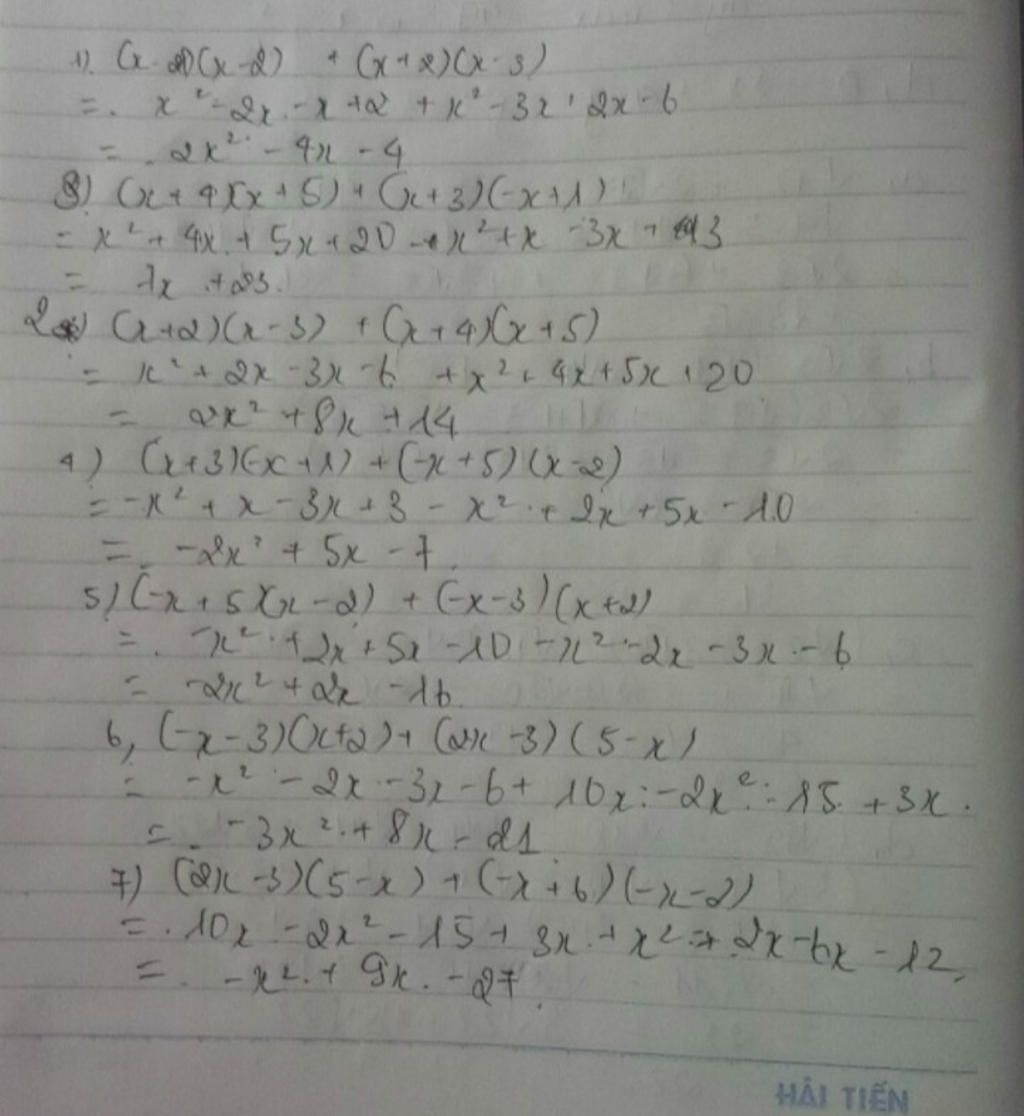 1). (x - 1)(x - 2) + (x + 2)(x - 3)
= x² - 2x - x + 2 + x² - 3x + 2x - 6
= 2x² - 4x - 4
3) (x + 4)(x + 5) + (x + 3)(-x + 1)
= x² + 4x + 5x + 20 - x² + x - 3x + 3
= 7x + 23.
2) (x + 2)(x - 3) + (x + 4)(x + 5)
= x² + 2x - 3x - 6 + x² + 4x + 5x + 20
= 2x² + 8x + 14
4) (x + 3)(-x + 1) + (-x + 5)(x - 2)
= -x² + x - 3x + 3 - x² + 2x + 5x - 10
= -2x² + 5x - 7
5) (-x + 5)(x - 2) + (-x - 3)(x + 2)
= -x² + 2x + 5x - 10 - x² - 2x - 3x - 6
= -2x² + 2x - 16
6, (-x - 3)(x + 2) + (2x - 3)(5 - x)
= -x² - 2x - 3x - 6 + 10x - 2x² - 15 + 3x.
= -3x² + 8x - 21
7) (2x - 3)(5 - x) + (-x + 6)(-x - 2)
= 10x - 2x² - 15 + 3x + x² + 2x - 6x - 12,
= -x² + 9x - 27.
HẢI TIẾN